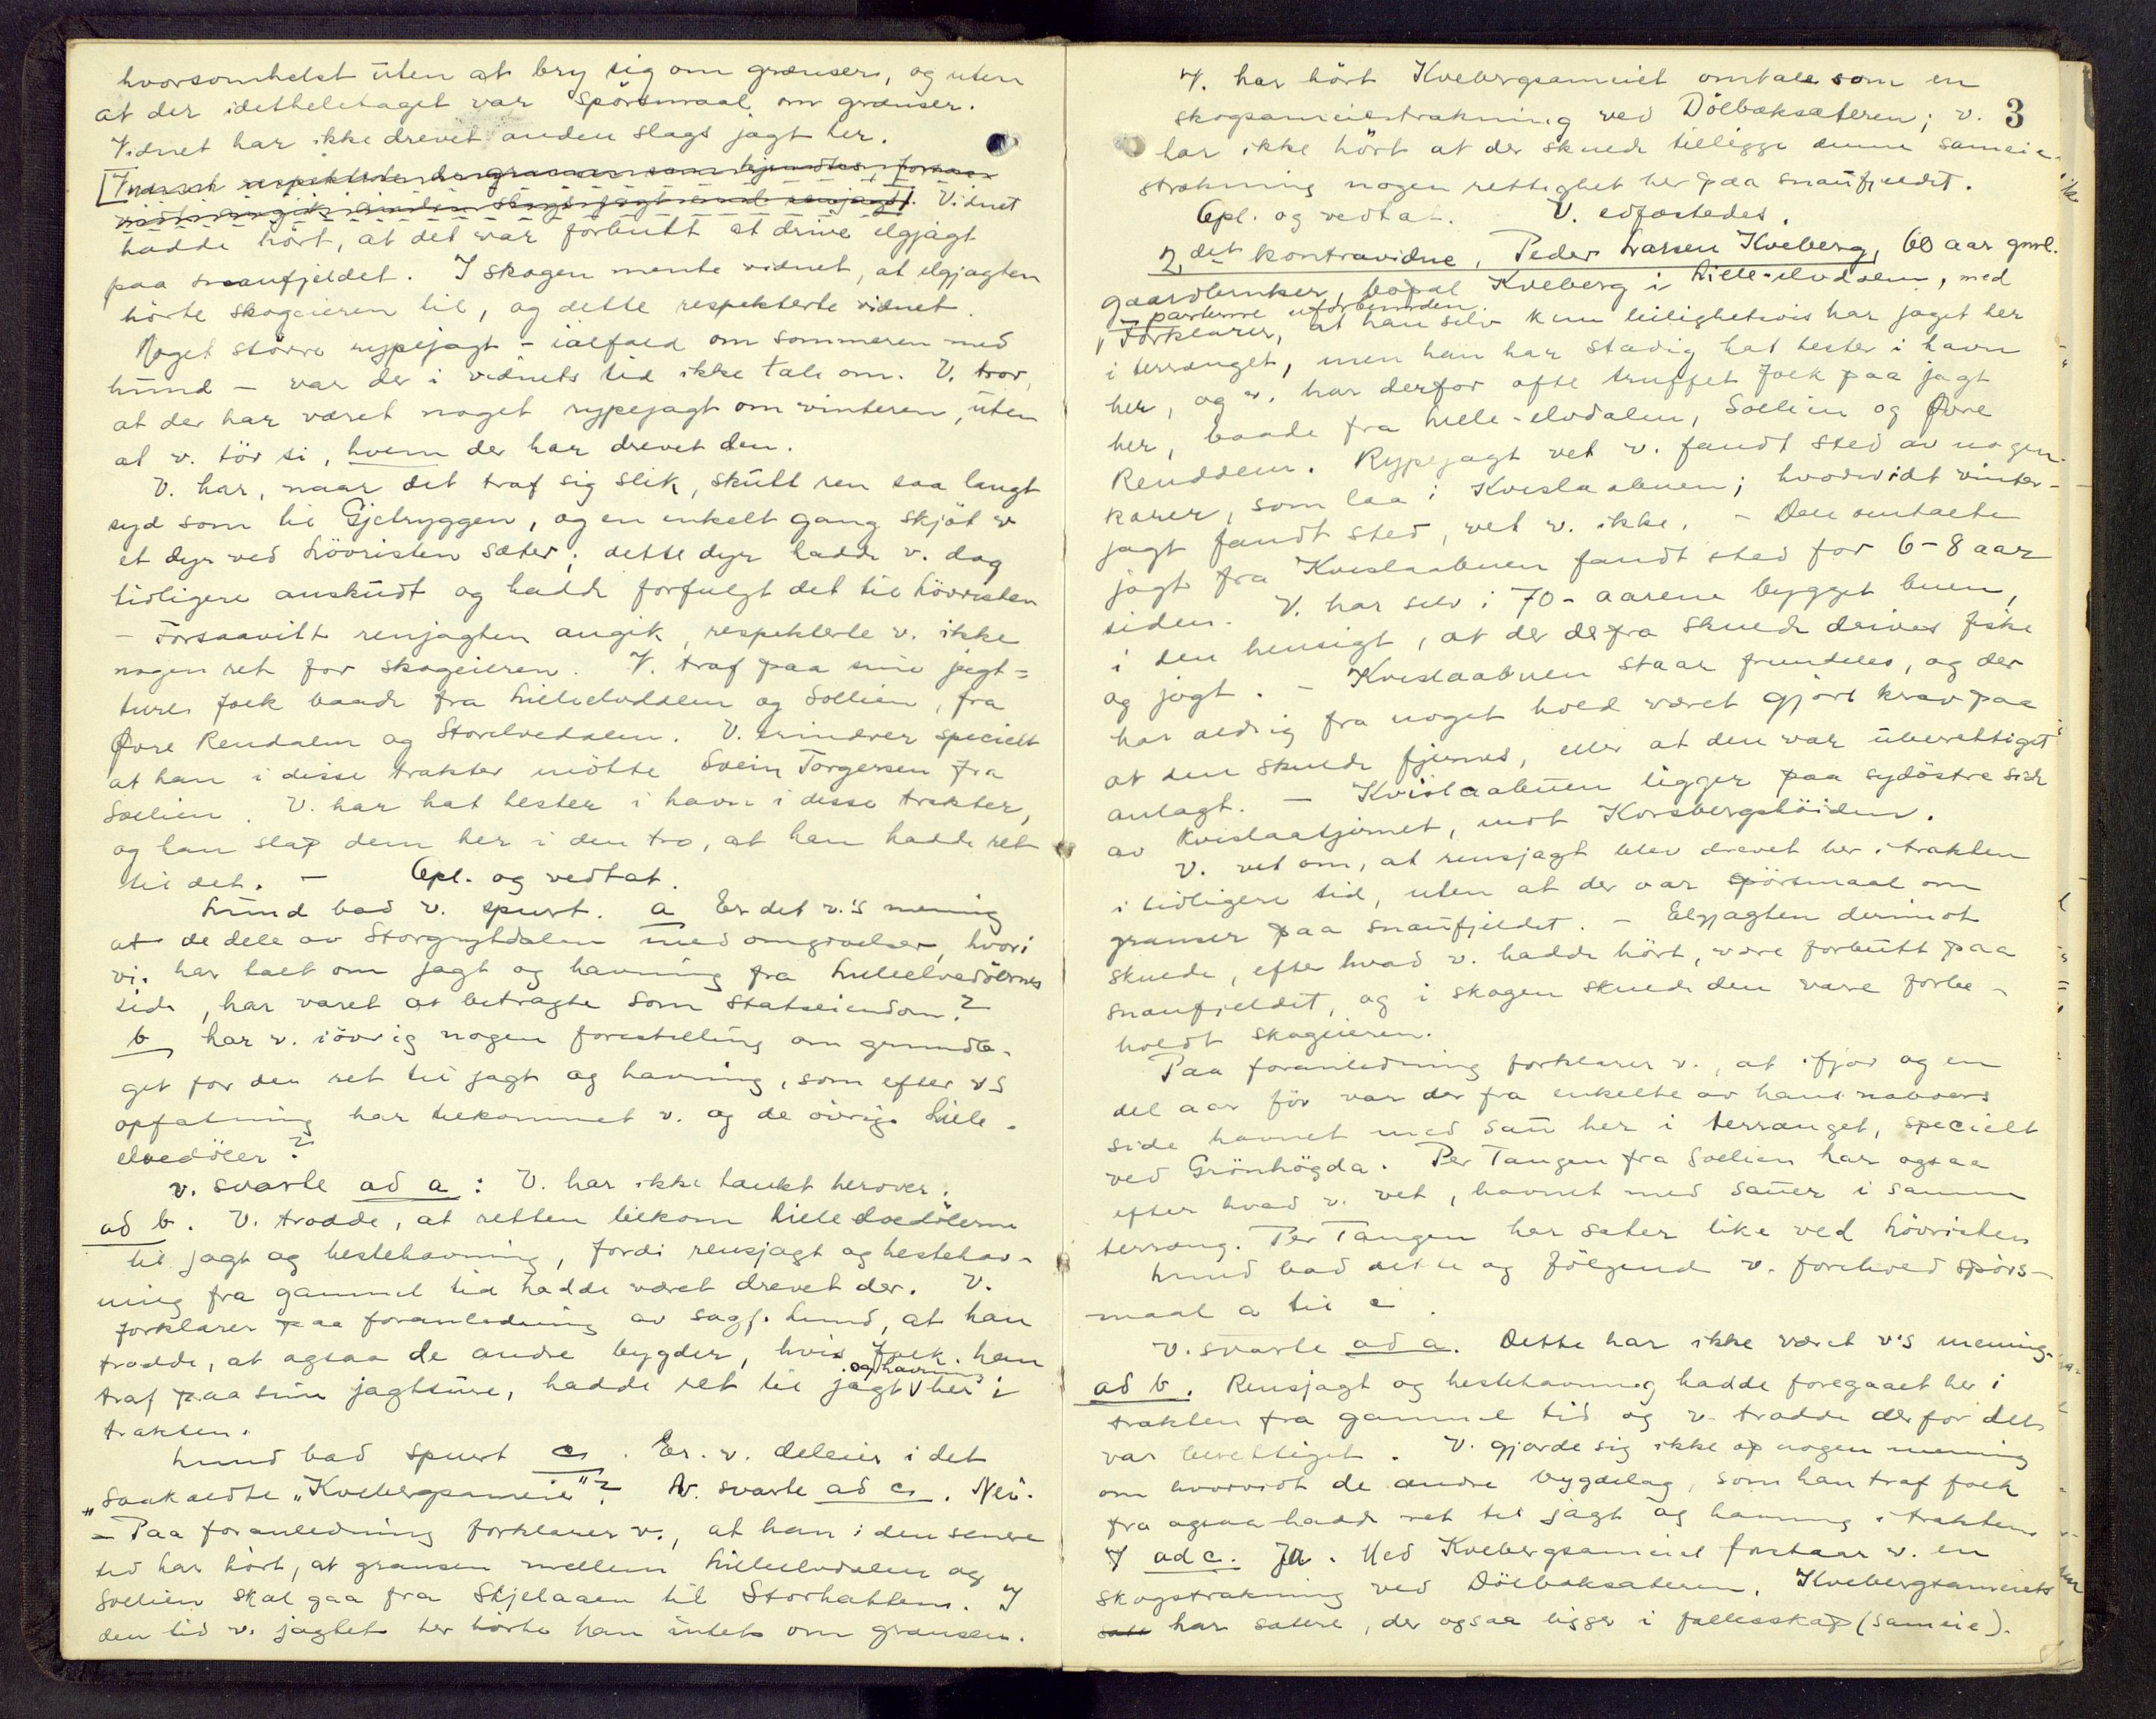 hvorsomhelst uten at bry sig om grænser, og uten
at der idetheletaget var spörsmaal om grænser.
Vidnet har ikke drevet anden slags jagt her.
Vidnet
hadde hört, at det var forbutt at drive elgjagt
paa snaufjeldet. I skogen mente vidnet, at elgjagten
hörte skogeieren til, og dette respekterte vidnet.
Noget större rypejagt - ialfald om sommeren med
hund - var der i vidnets tid ikke tale om. V. tror,
at der har været noget rypejagt om vinteren, uten
at v. tör si, hvem der har drevet den.
V. har, naar det traf sig slik, skutt ren saa langt
syd som til Gjetryggen, og en enkelt gang skjöt v
et dyr ved Lövristen sæter; dette dyr hadde v. dag
tidligere anskudt og hadde forfulgt det til Lövristen
- Forsaavitt renjagten angik, respekterte v. ikke
nogen ret for skogeieren. V. traf paa sine jagt=
turer folk baade fra Lilleelvdalen og Sollien, fra
Øvre Rendalen og Storelvedalen. V. erindrer specielt
at han i disse trakter mötte Svein Torgersen fra
Sollien. V. har hat hester i havn i disse trakter,
og han slap dem her i den tro, at han hadde ret
til det. - Opl. og vedtat.
Lund bad v. spurt. a Er det v.'s mening
at de dele av Storgrytdalen med omgivelser, hvori
vi. har talt om jagt og havning fra Lilleelvedölernes
side, har været at betragte som statseiendom?
b har v. iövrig nogen forestilling om grundla-
get for den ret til jagt og havning, som efter v's
opfatning har tilkommet v. og de övrige Lille-
elvedöler?
v. svarte ad a: V. har ikke tænkt herover.
ad b. V. trodde, at retten tilkom Lilleelvedölerne
til jagt og hestehavning, fordi rensjagt og hestehav-
ning fra gammel tid hadde været drevet der. V.
forklarer paa foranledning av sagf. Lund, at han
trodde, at ogsaa de andre bygder, hvis folk han
og havning
traf paa sine jagtture, hadde ret til jagt her i
trakten.
Lund bad spurt c. Er v. deleier i det
"saakaldte "Kvebergsameie"? V. svarte ad c. Nei.
- Paa foranledning forklarer v., at han i den senere
tid har hört, at grænsen mellem Lilleelvdalen og
Sollien skal gaa fra Skjelaaen til Storhatten. I
den tid v. jagtet her hörte han intet om grænsen.
3
V. har hört Kvebergsameiet omtale som en
skogsameiestrækning ved Dölbæksæteren; v.
har ikke hört at der skulde tilligge denne sameie-
strækning nogen rettighet her paa snaufjeldet.
Opl. og vedtat. V. edfæstedes.
2det kontravidne, Peder Larsen Kveberg, 60 aar gml.
gaardbruker, bopæl Kveberg i Lille-elvdalen, med
parterne uforbunden.
Forklarer, at han selv kun leilighetsvis har jaget her
i terrænget, men han har stadig hat hester i havn
her, og v. har derfor ofte truffet folk paa jagt
her, baade fra Lille-elvdalen, Sollien og Øvre
Rendalen. Rypejagt vet v. fandt sted av nogen
karer, som laa i Kvislaabuen; hvorvidt vinter-
jagt fandt sted, vet v. ikke. - Den omtalte
jagt fra Kvislaabuen fandt sted for 6-8 aar
siden. V. har selv i 70-aarene bygget buen,
i den hensigt, at der derfra skulde drives fiske
og jagt. - Kvislaabuen staar fremdeles, og der
har aldrig fra noget hold været gjort krav paa
at den skulde fjernes, eller at den var uberettiget
anlagt. - Kvislaabuen ligger paa sydöstre side
av Kvislaatjernet, mot Korsbergshöiden.
V. vet om, at rensjagt blev drevet her i trakten
i tidligere tid, uten at der var spörsmaal om
grænser paa snaufjeldet. - Elgjagten derimot
skulde, efter hvad v. hadde hört, være forbutt paa
snaufjeldet, og i skogen skulde den være forbe-
holdt skogeieren.
Paa foranledning forklarer v., at ifjor og en
del aar för var der fra enkelte av hans naboers
side havnet med sau her i terrænget, specielt
ved Grönhögda. Per Tangen fra Sollien har ogsaa
efter hvad v. vet, havnet med sauer i samme
terræng. Per Tangen har sæter like ved Lövristen
Lund bad dette og fölgende v. foreholdt spörs-
maal a til c.
V. svarte ad a. Dette har ikke været v's mening.
ad b. Rensjagt og hestehavning hadde foregaaet her i
trakten fra gammel tid og v. trodde derfor det
var berettiget. V. gjorde sig ikke op nogen mening
om hvorvidt de andre bygdelag, som han traf folk
fra ogsaa hadde ret til jagt og havning i trakten
ad c. Ja. Med Kvebergsameiet forstaar v. en
skogstrækning ved Dölbæksæteren. Kvebergsameiets
har sætere, der ogsaa ligger i fællesskap (sameie).